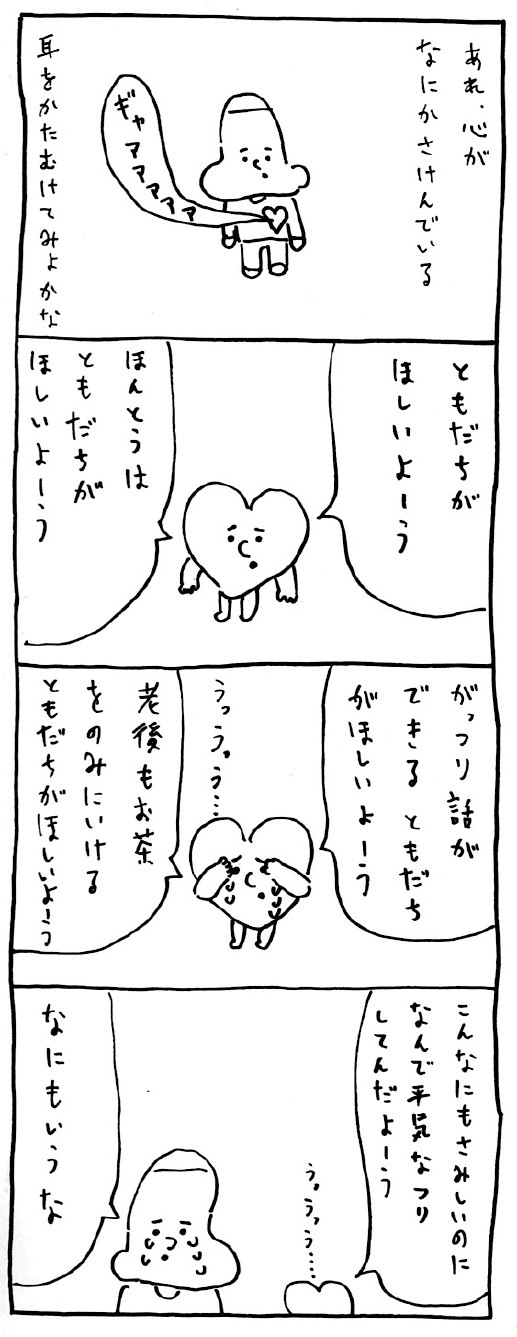 あれ、心が
なにかさけんでいる
ギャアアアアアア
耳をかたむけてみよかな
ともだちが
ほしいよーう
ほんとうは
ともだちが
ほしいよーう
がっつり話が
できるともだち
がほしいよーう
うっうっう…
老後もお茶
をのみにいける
ともだちがほしいよーう
こんなにもさみしいのに
なんで平気なフリ
してんだよーう
うっうっう…
なにもいうな